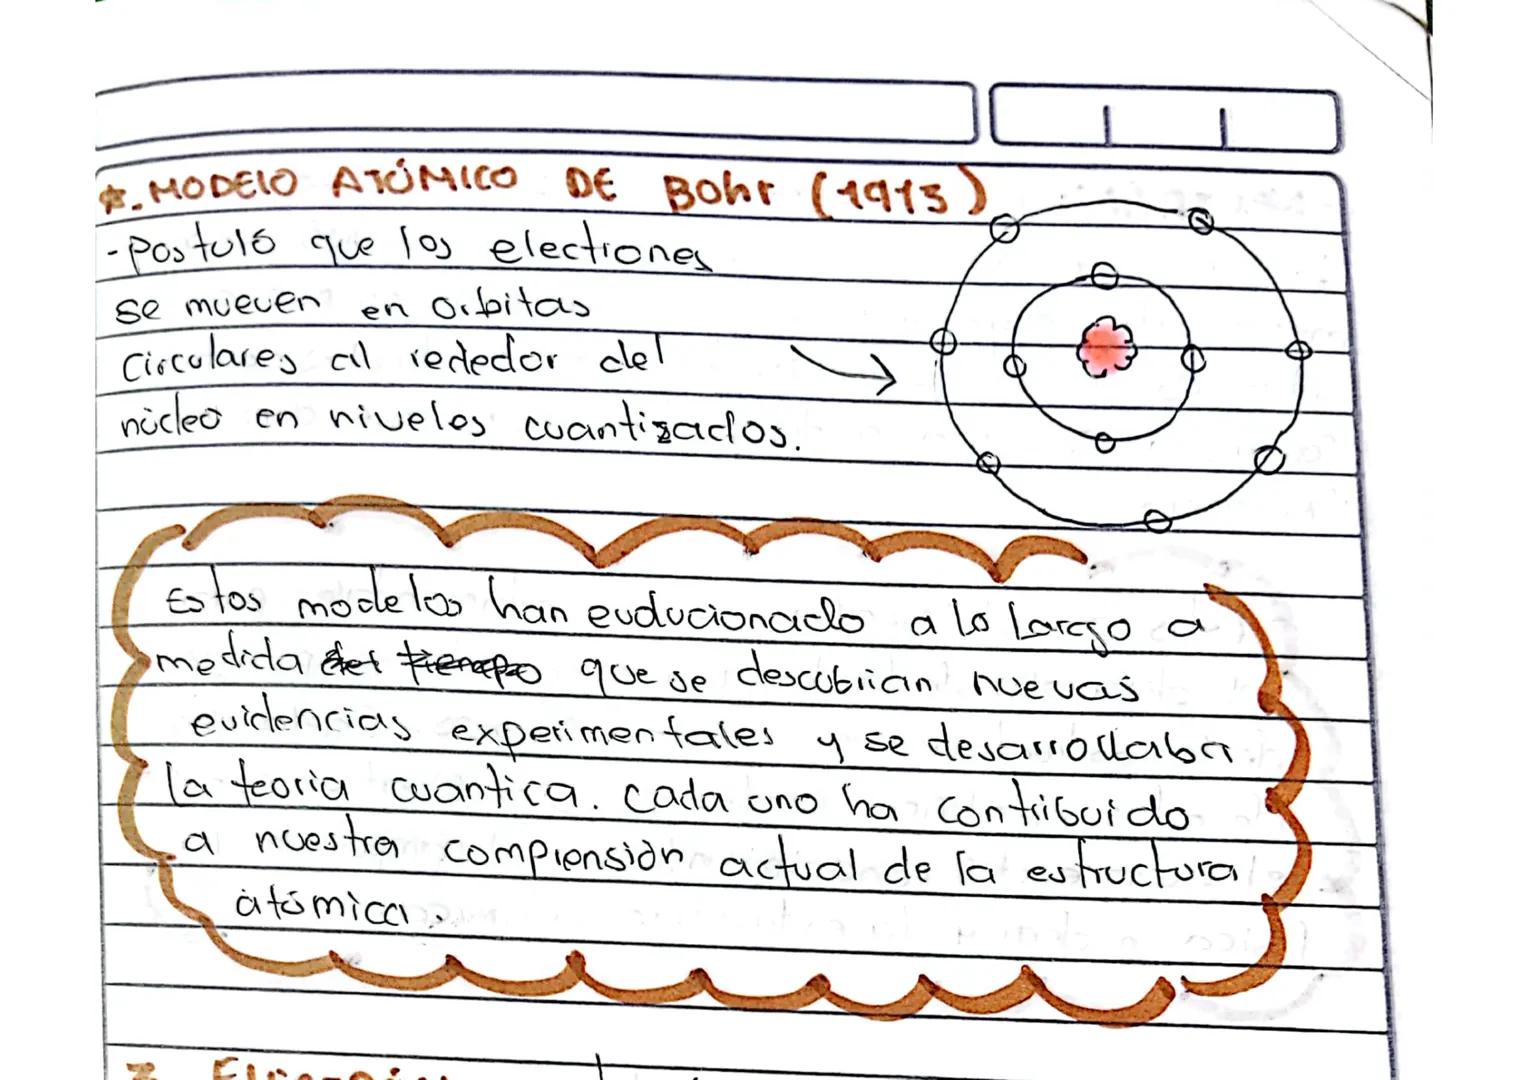 *. MODELO ATÓMICO DE Bohr (1913)
- Postuló que los electrones
se mueven en orbitas
Circulares al rededor del
núcleo en niveles cuantizados.
Estos modelos han evolucionado a lo largo a
medida del tiempo que se descubrian nuevas
evidencias experimentales y se desarrollaba
la teoria cuantica. Cada uno ha contribuido
a nuestra comprensión actual de la estructura
atómica.